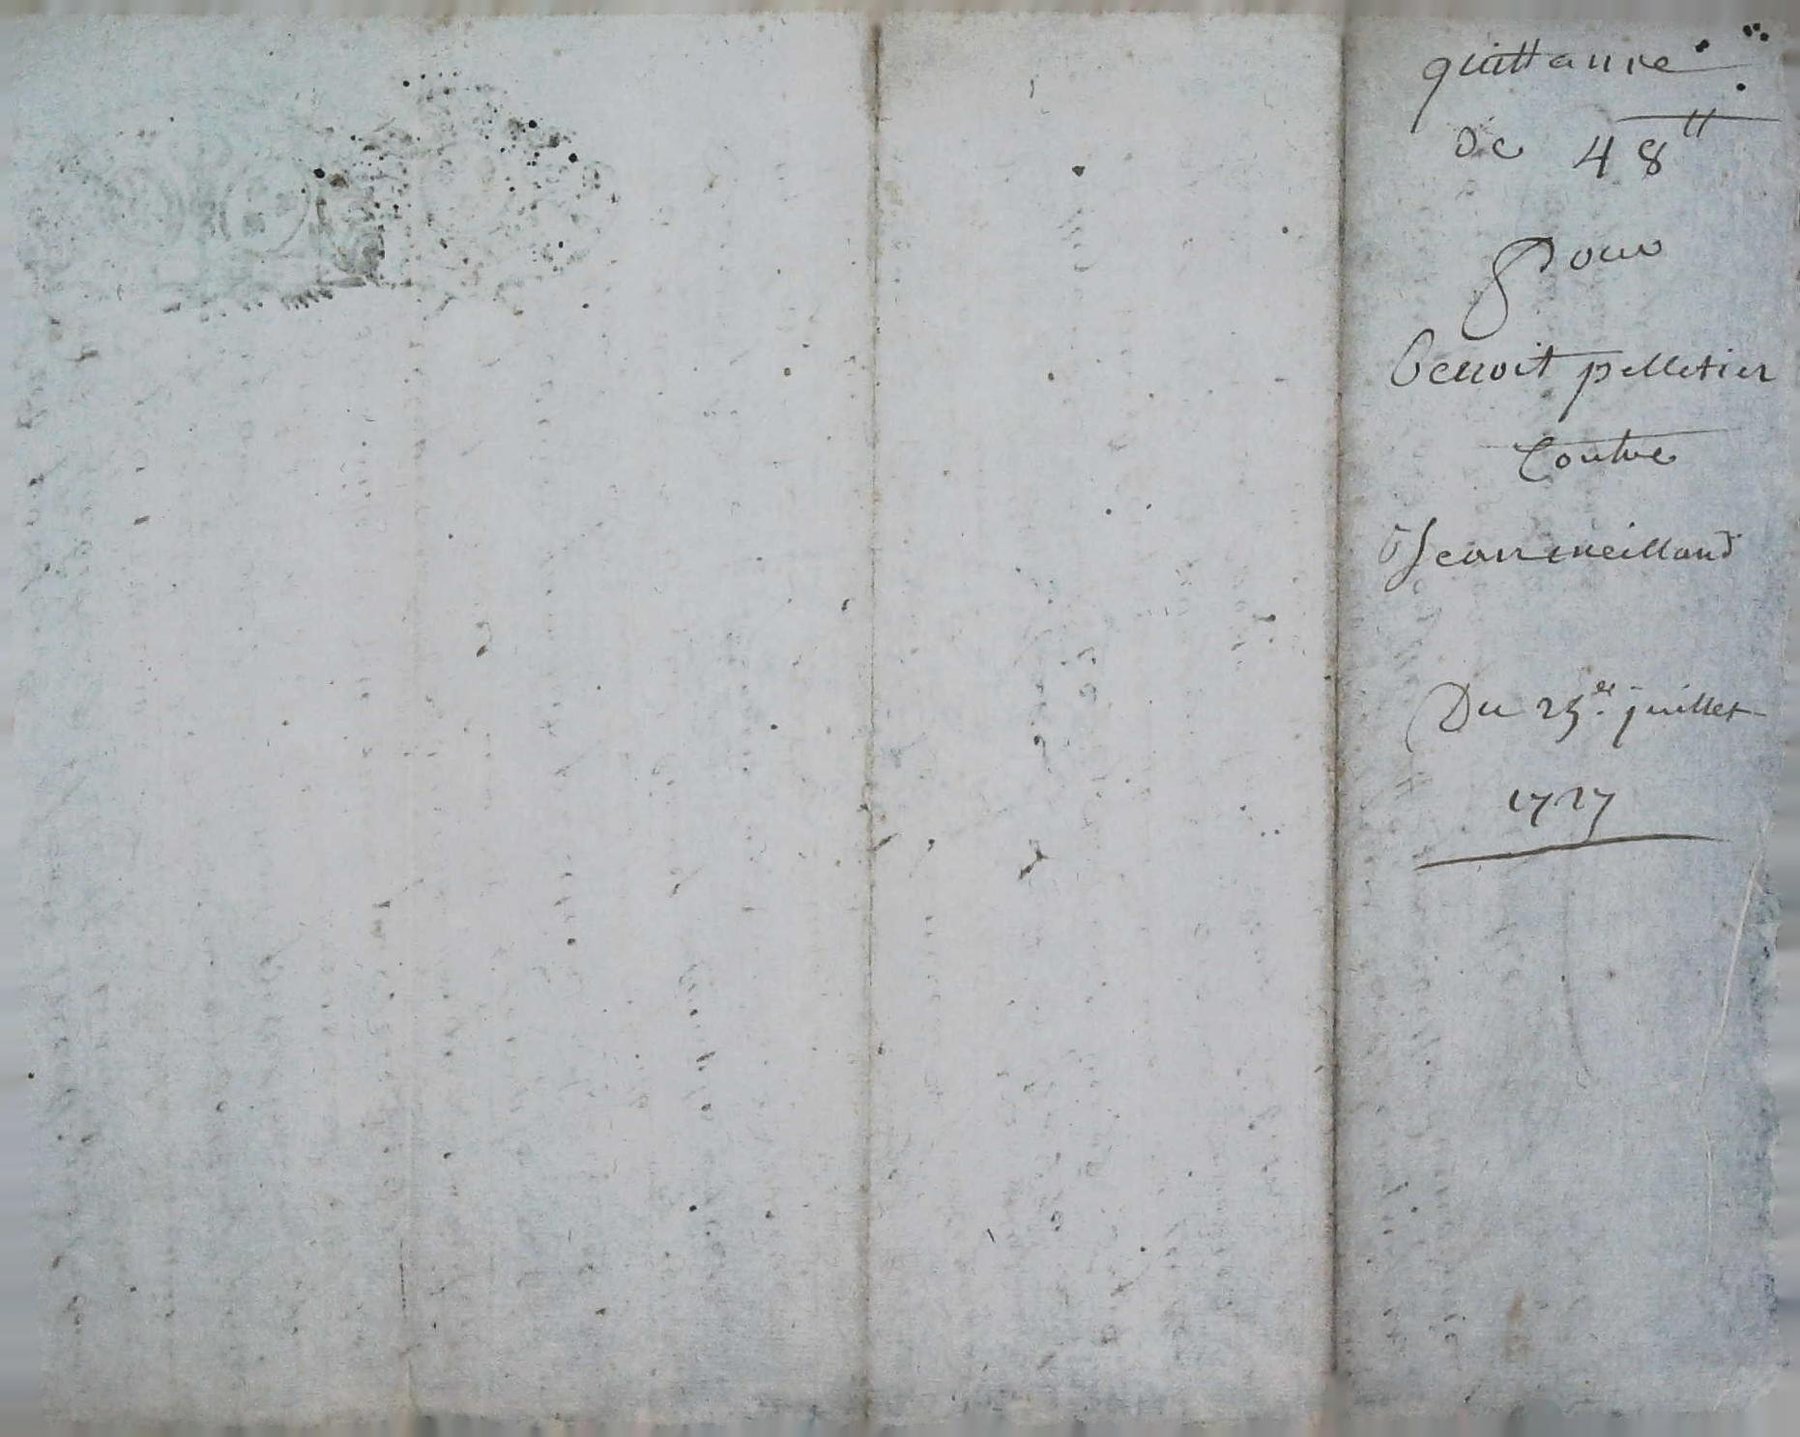 quittance
de 48 ₶
Pour
benoit pelletier
Contre
Jean meilland
Du 25e juillet
1727